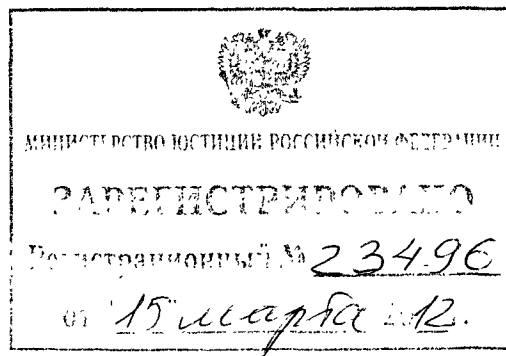 МИНИСТЕРСТВО ЮСТИЦИИ РОССИЙСКОЙ ФЕДЕРАЦИИ
ЗАРЕГИСТРИРОВАНО
Регистрационный № 23496
от "15" марта 2012.